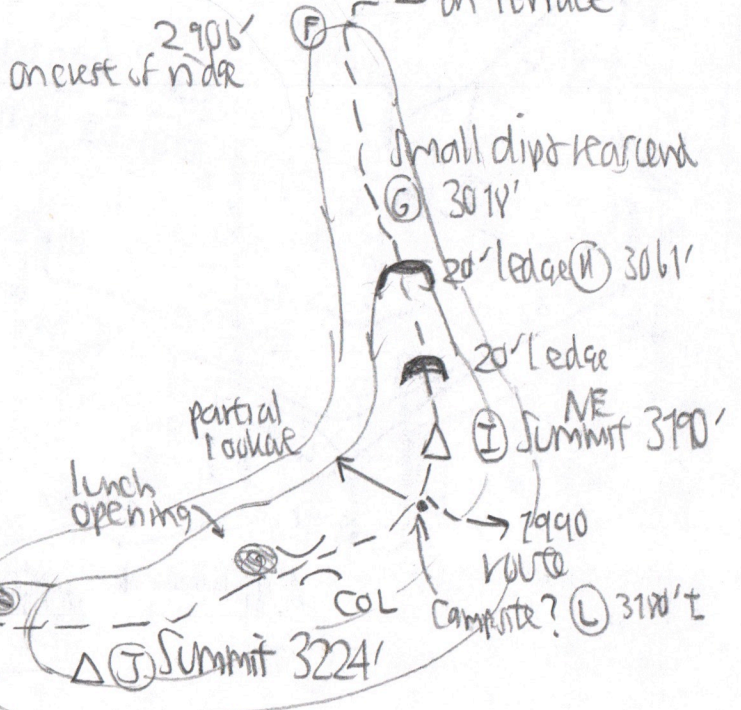 on terrace
F
2906'
on crest of ridge
Small dip & reascend
G 3018'
20' ledge H 3061'
20' ledge
NE
I Summit 3190'
partial
lookout
lunch
opening
1990
route
COL
Campsite? L 3180'±
J Summit 3224'